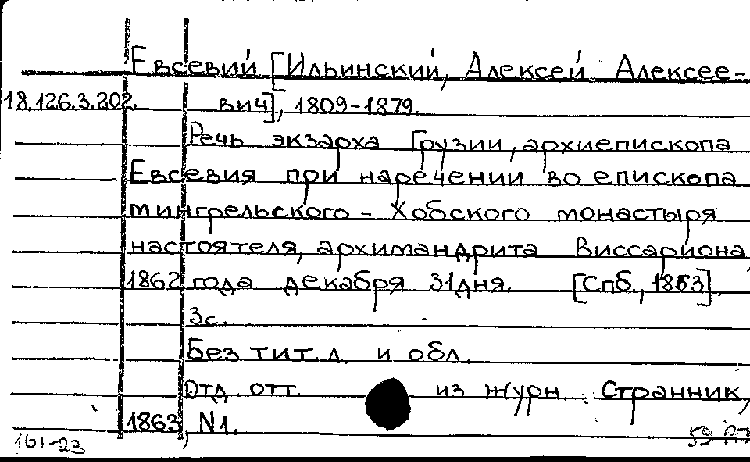 Евсевий [Ильинский, Алексей Алексее-
18.126.3.202. вич], 1809-1879.
Речь экзарха Грузии, архиепископа
Евсевия при наречении во епископа
мингрельского - Хобского монастыря
настоятеля, архимандрита Виссариона
1862 года декабря 31 дня. [Спб., 1863]
3с.
Без тит. л. и обл.
Отд. отт. из журн. Странник,
1863, N1.
161-23